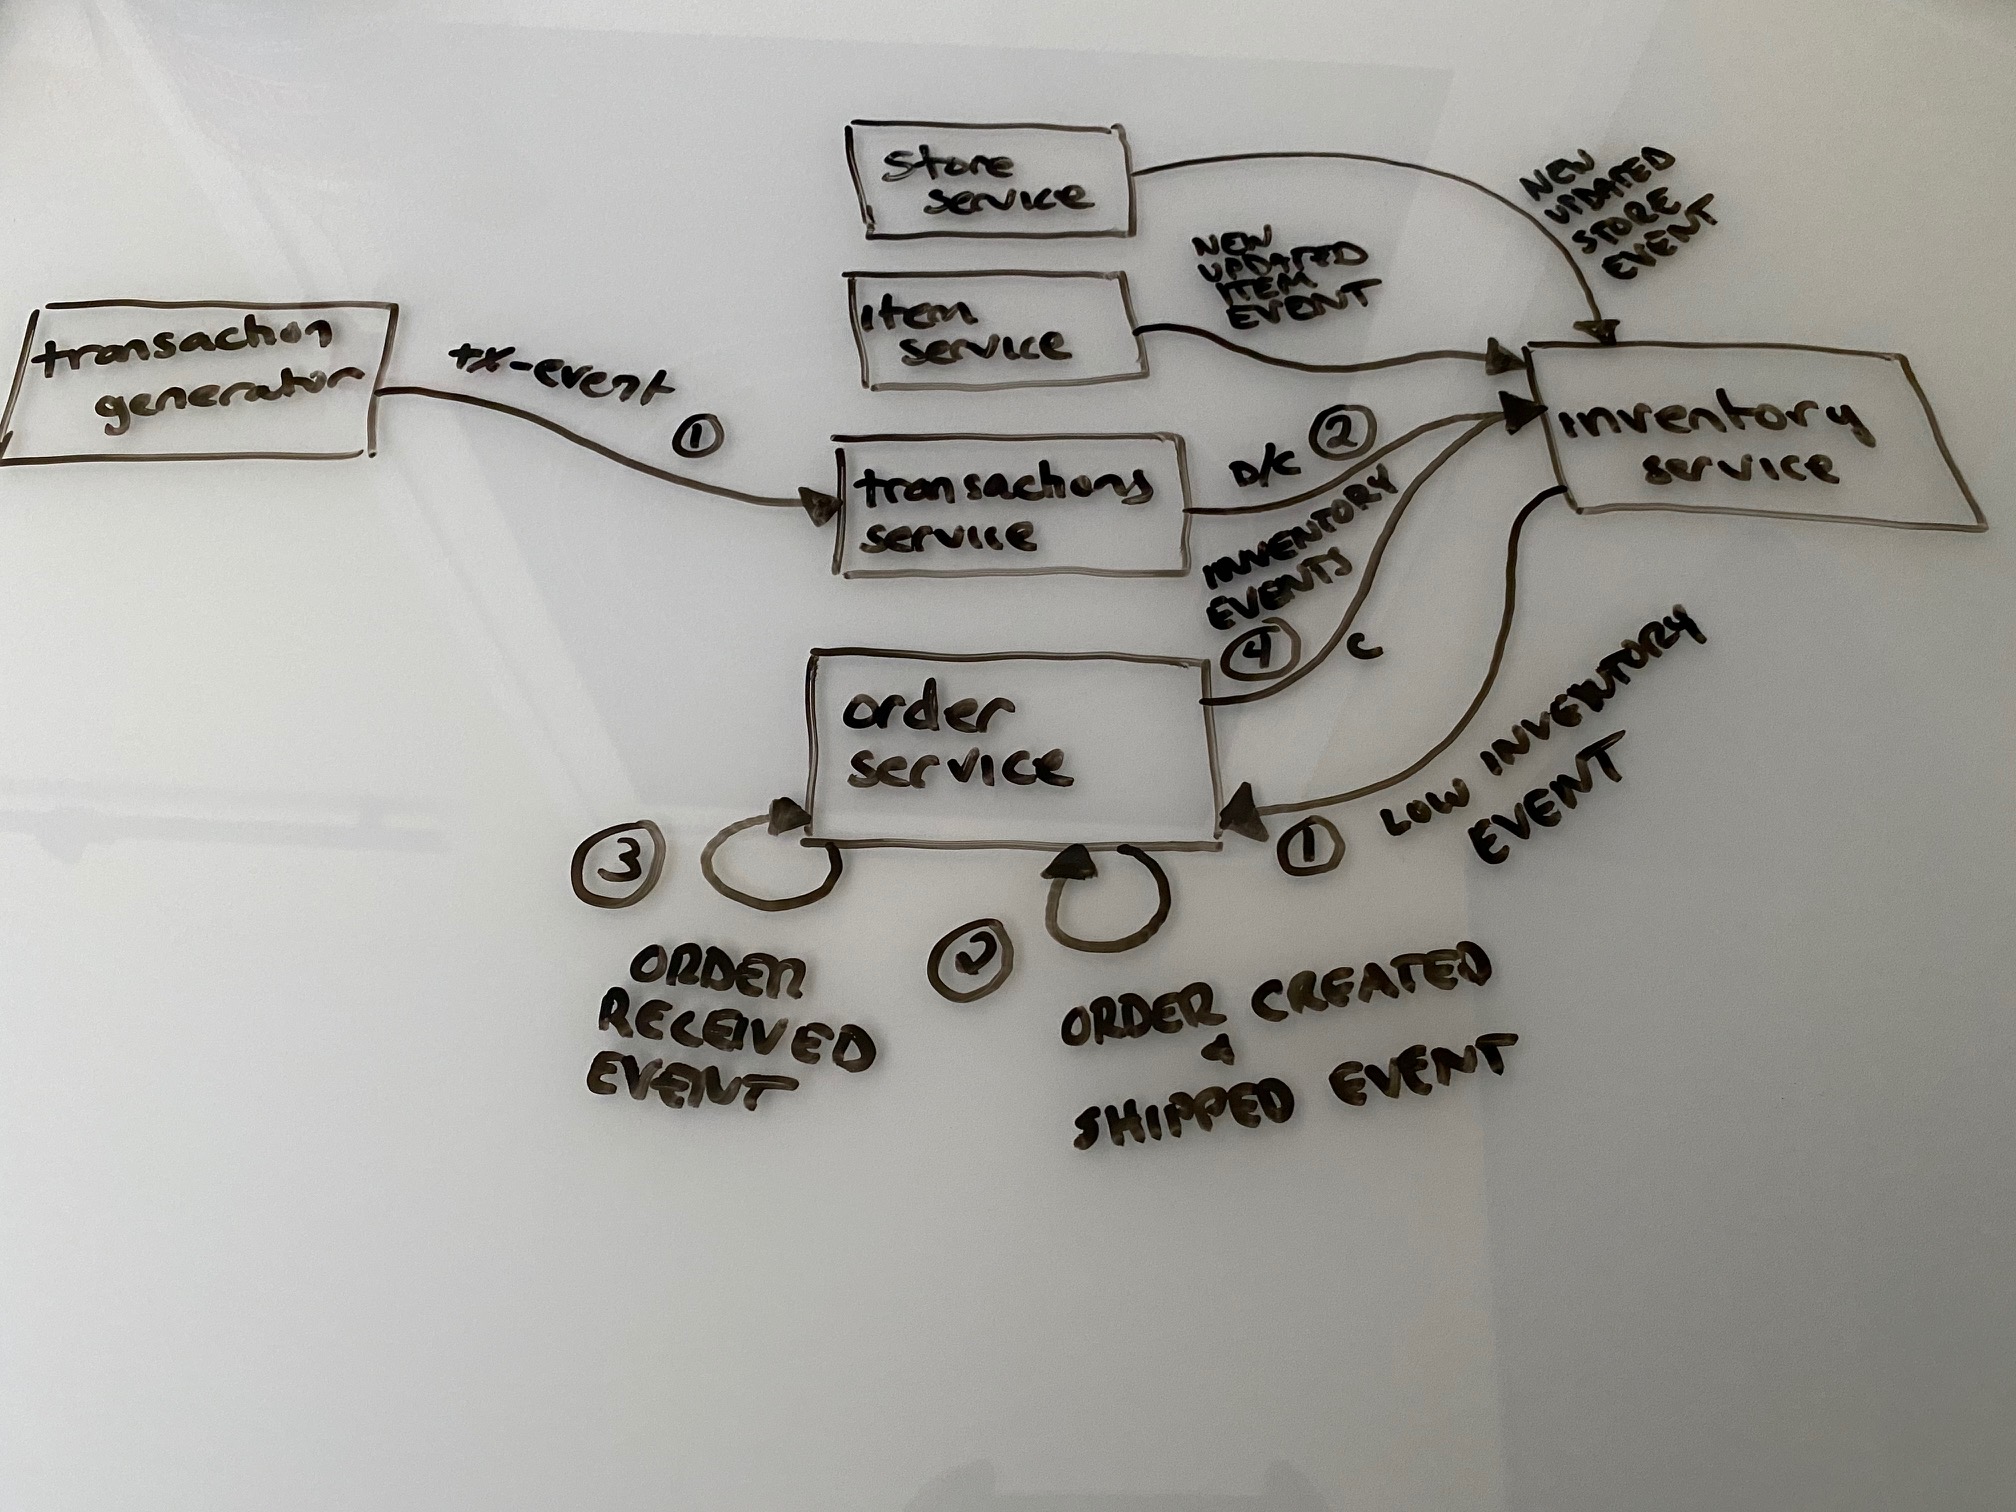 store
service
NEW
UPDATED
STORE
EVENT
item
service
NEW
UPDATED
ITEM
EVENT
transaction
generator
tx-event
1
transactions
service
D/C
2
INVENTORY
EVENTS
inventory
service
order
service
4
C
1
LOW INVENTORY
EVENT
3
ORDER
RECEIVED
EVENT
2
ORDER CREATED
&
SHIPPED EVENT